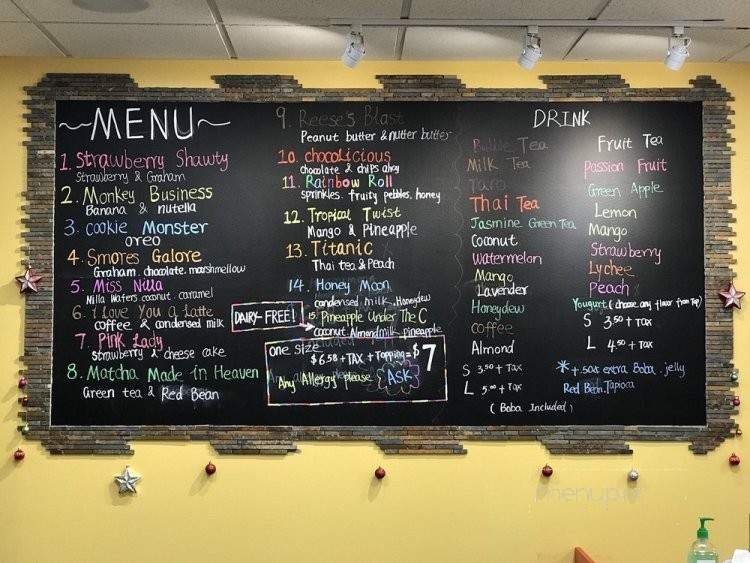 ~MENU~
1. Strawberry Shawty
Strawberry & Graham
2. Monkey Business
Banana & nutella
3. cookie Monster
oreo
4. Smores Galore
Graham. chocolate. marshmellow
5. Miss Nilla
Nilla Wafers. coconut. caramel
6. I Love You a Latte
coffee & condensed milk
7. Pink Lady
strawberry & cheese cake
8. Matcha Made In Heaven
Green tea & Red Bean
9. Reese's Blast
Peanut butter & nutter butter
10. chocolicious
chocolate & chips ahoy
11. Rainbow Roll
sprinkles. fruity pebbles. honey
12. Tropical Twist
Mango & Pineapple
13. Titanic
Thai tea & Peach
14. Honey Moon
condensed milk. Honeydew
DAIRY-FREE!
15. Pineapple Under The C
coconut Almond milk. Pineapple
one size
$6.58 + TAX + Topping = $7
Any Allergy please ASK
DRINK
Bubble Tea
Milk Tea
Taro
Thai Tea
Jasmine Green Tea
Coconut
Watermelon
Mango
Lavender
Honeydew
coffee
Almond
S 3.50 + TAX
L 5.00 + TAX
(Boba Included)
Fruit Tea
Passion Fruit
Green Apple
Lemon
Mango
Strawberry
Lychee
Peach
Yougurt (choose any flavor from Top)
S 3.50 + TAX
L 4.50 + TAX
* + .50¢ extra Boba. jelly
Red Bean. Tapioca
menupix